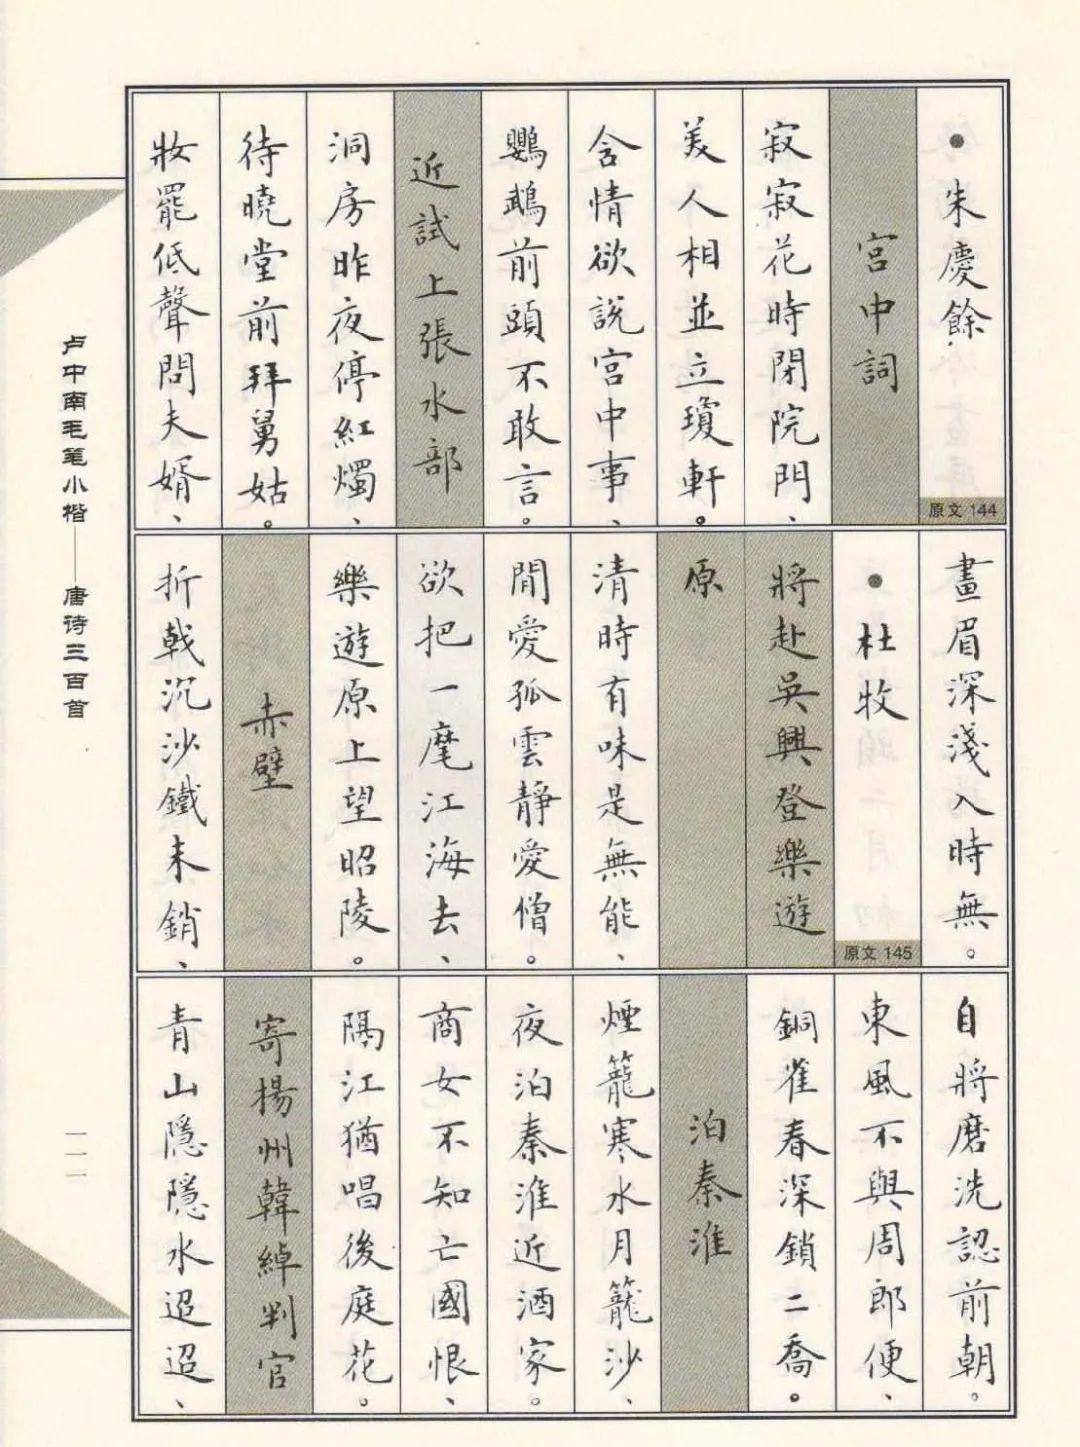 •朱慶餘
原文144
宮中詞
寂寂花時閉院門、
美人相並立瓊軒。
含情欲說宮中事、
鸚鵡前頭不敢言。
近試上張水部
洞房昨夜停紅燭、
待曉堂前拜舅姑。
妝罷低聲問夫婿、
畫眉深淺入時無。
•杜牧
原文145
將赴吳興登樂遊
原
清時有味是無能、
閒愛孤雲靜愛僧。
欲把一麾江海去、
樂遊原上望昭陵。
赤壁
折戟沉沙鐵未銷、
自將磨洗認前朝。
東風不與周郎便、
銅雀春深鎖二喬。
泊秦淮
煙籠寒水月籠沙、
夜泊秦淮近酒家。
商女不知亡國恨、
隔江猶唱後庭花。
寄揚州韓綽判官
青山隱隱水迢迢、
卢中南毛笔小楷——唐诗三百首
一一一